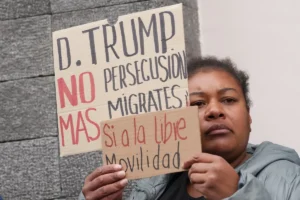 D. TRUMP.
NO PERSECUSIÓN
MAS MIGRATES
Si a la libre
Movilidad